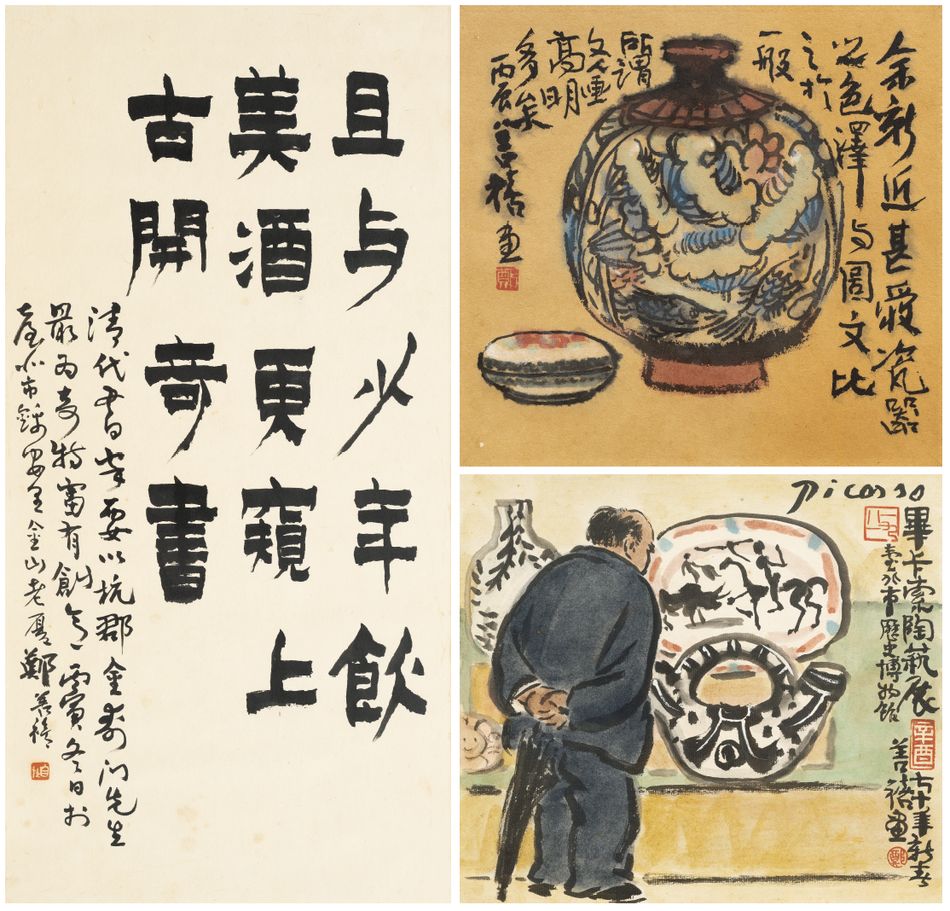 且与少年飲
美酒更窺上
古開奇書
清代書家要以杭郡金壽門先生
最為奇特富有創意丙寅冬日於
臺北市錦安里金山老厝 鄭善禧
余新近甚愛瓷器
色澤与圖文比
之於
一般
所謂
文人畫
高明
多矣
丙辰 善禧畫
鄭
Picasso
畢卡索陶藝展
臺北市歷史博物館
辛酉
七十年新春
善禧畫
鄭